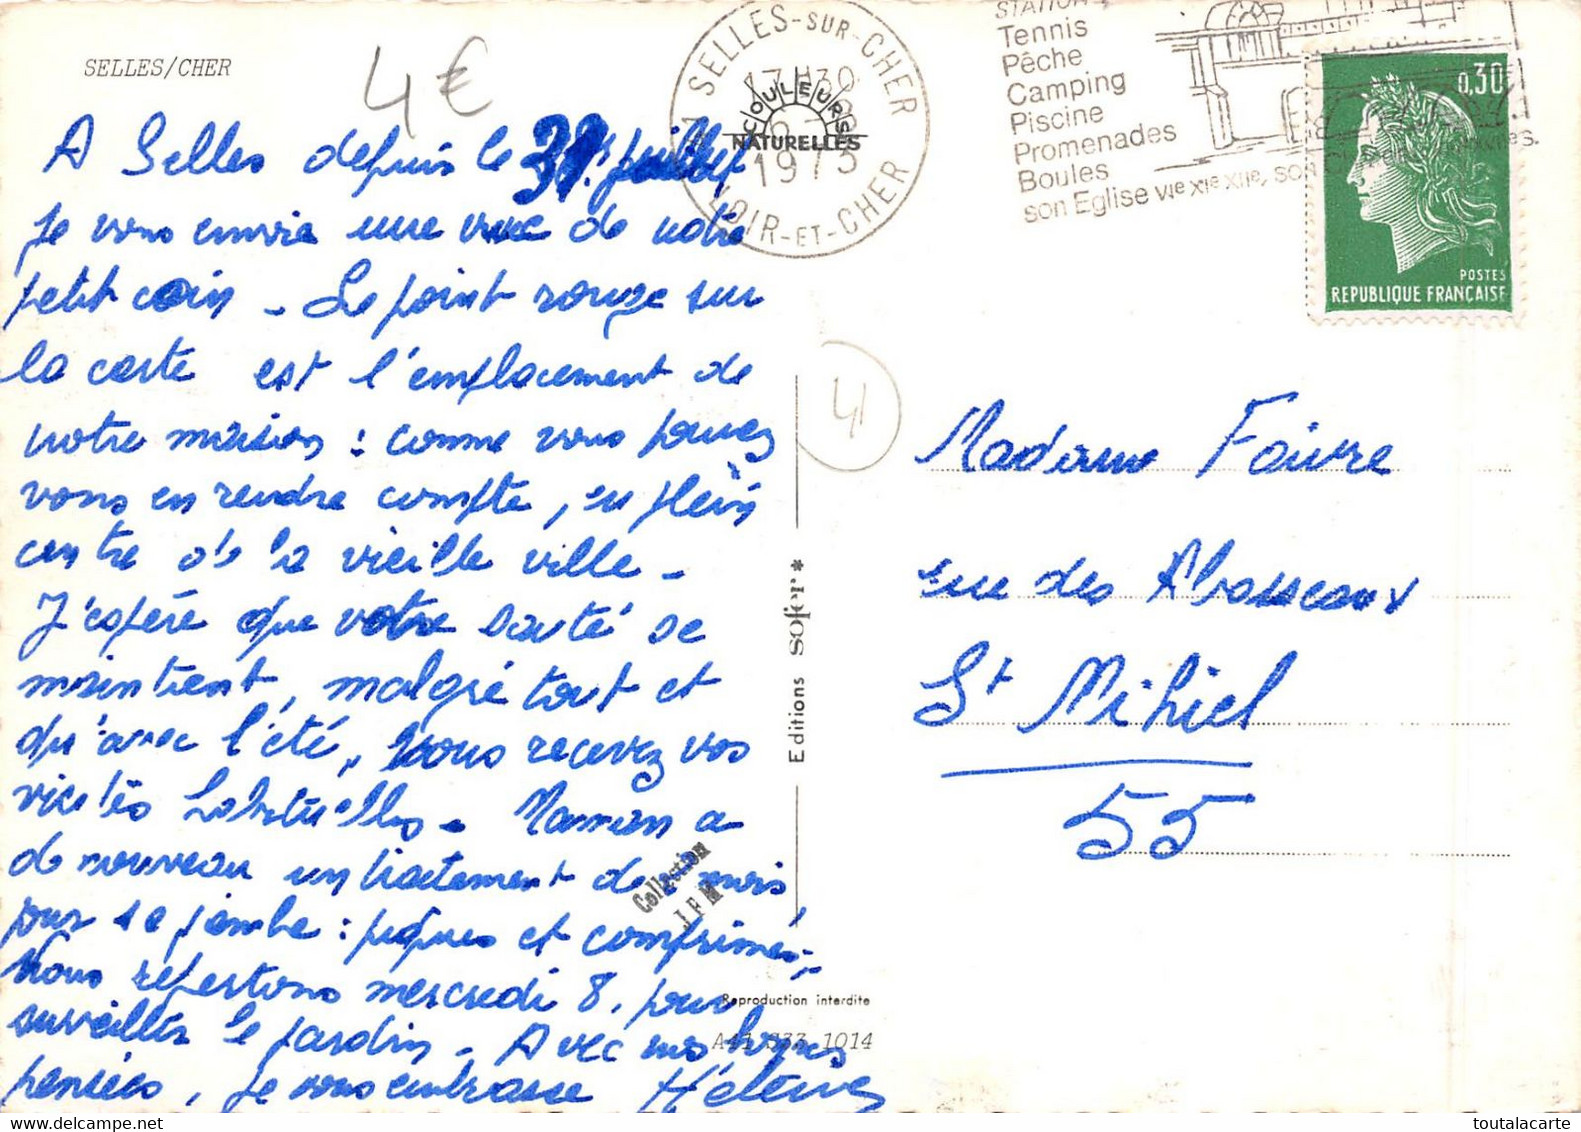 SELLES/CHER
4€
A Selles depuis le 31 juillet
Je vous envoie une vue de notre
petit coin - Le point rouge sur
la carte est l'emplacement de
notre maison : comme vous pouvez
vous en rendre compte, en plein
centre de la vieille ville -
J'espère que votre santé se
maintient, malgré tout et
qu'avec l'été, vous recevez vos
visites habituelles - Maman a
de nouveau un traitement de mois
pour sa jambe : piqûres et comprimés -
Nous repartons mercredi 8, pour
surveiller le jardin - Avec nos bonnes
pensées, je vous embrasse Hélène
41 SELLES-SUR-CHER
17H30
1973
LOIR-ET-CHER
COULEURS
NATURELLES
STATION
Tennis
Pêche
Camping
Piscine
Promenades
Boules
son Eglise VIe XIe XIIe, son
0,30
POSTES
REPUBLIQUE FRANÇAISE
41
Madame Faivre
rue des Abasseaux
St Mihiel
55
Editions sofer*
Collection
JFM
Reproduction interdite
A41 333 1014
toutalacarte